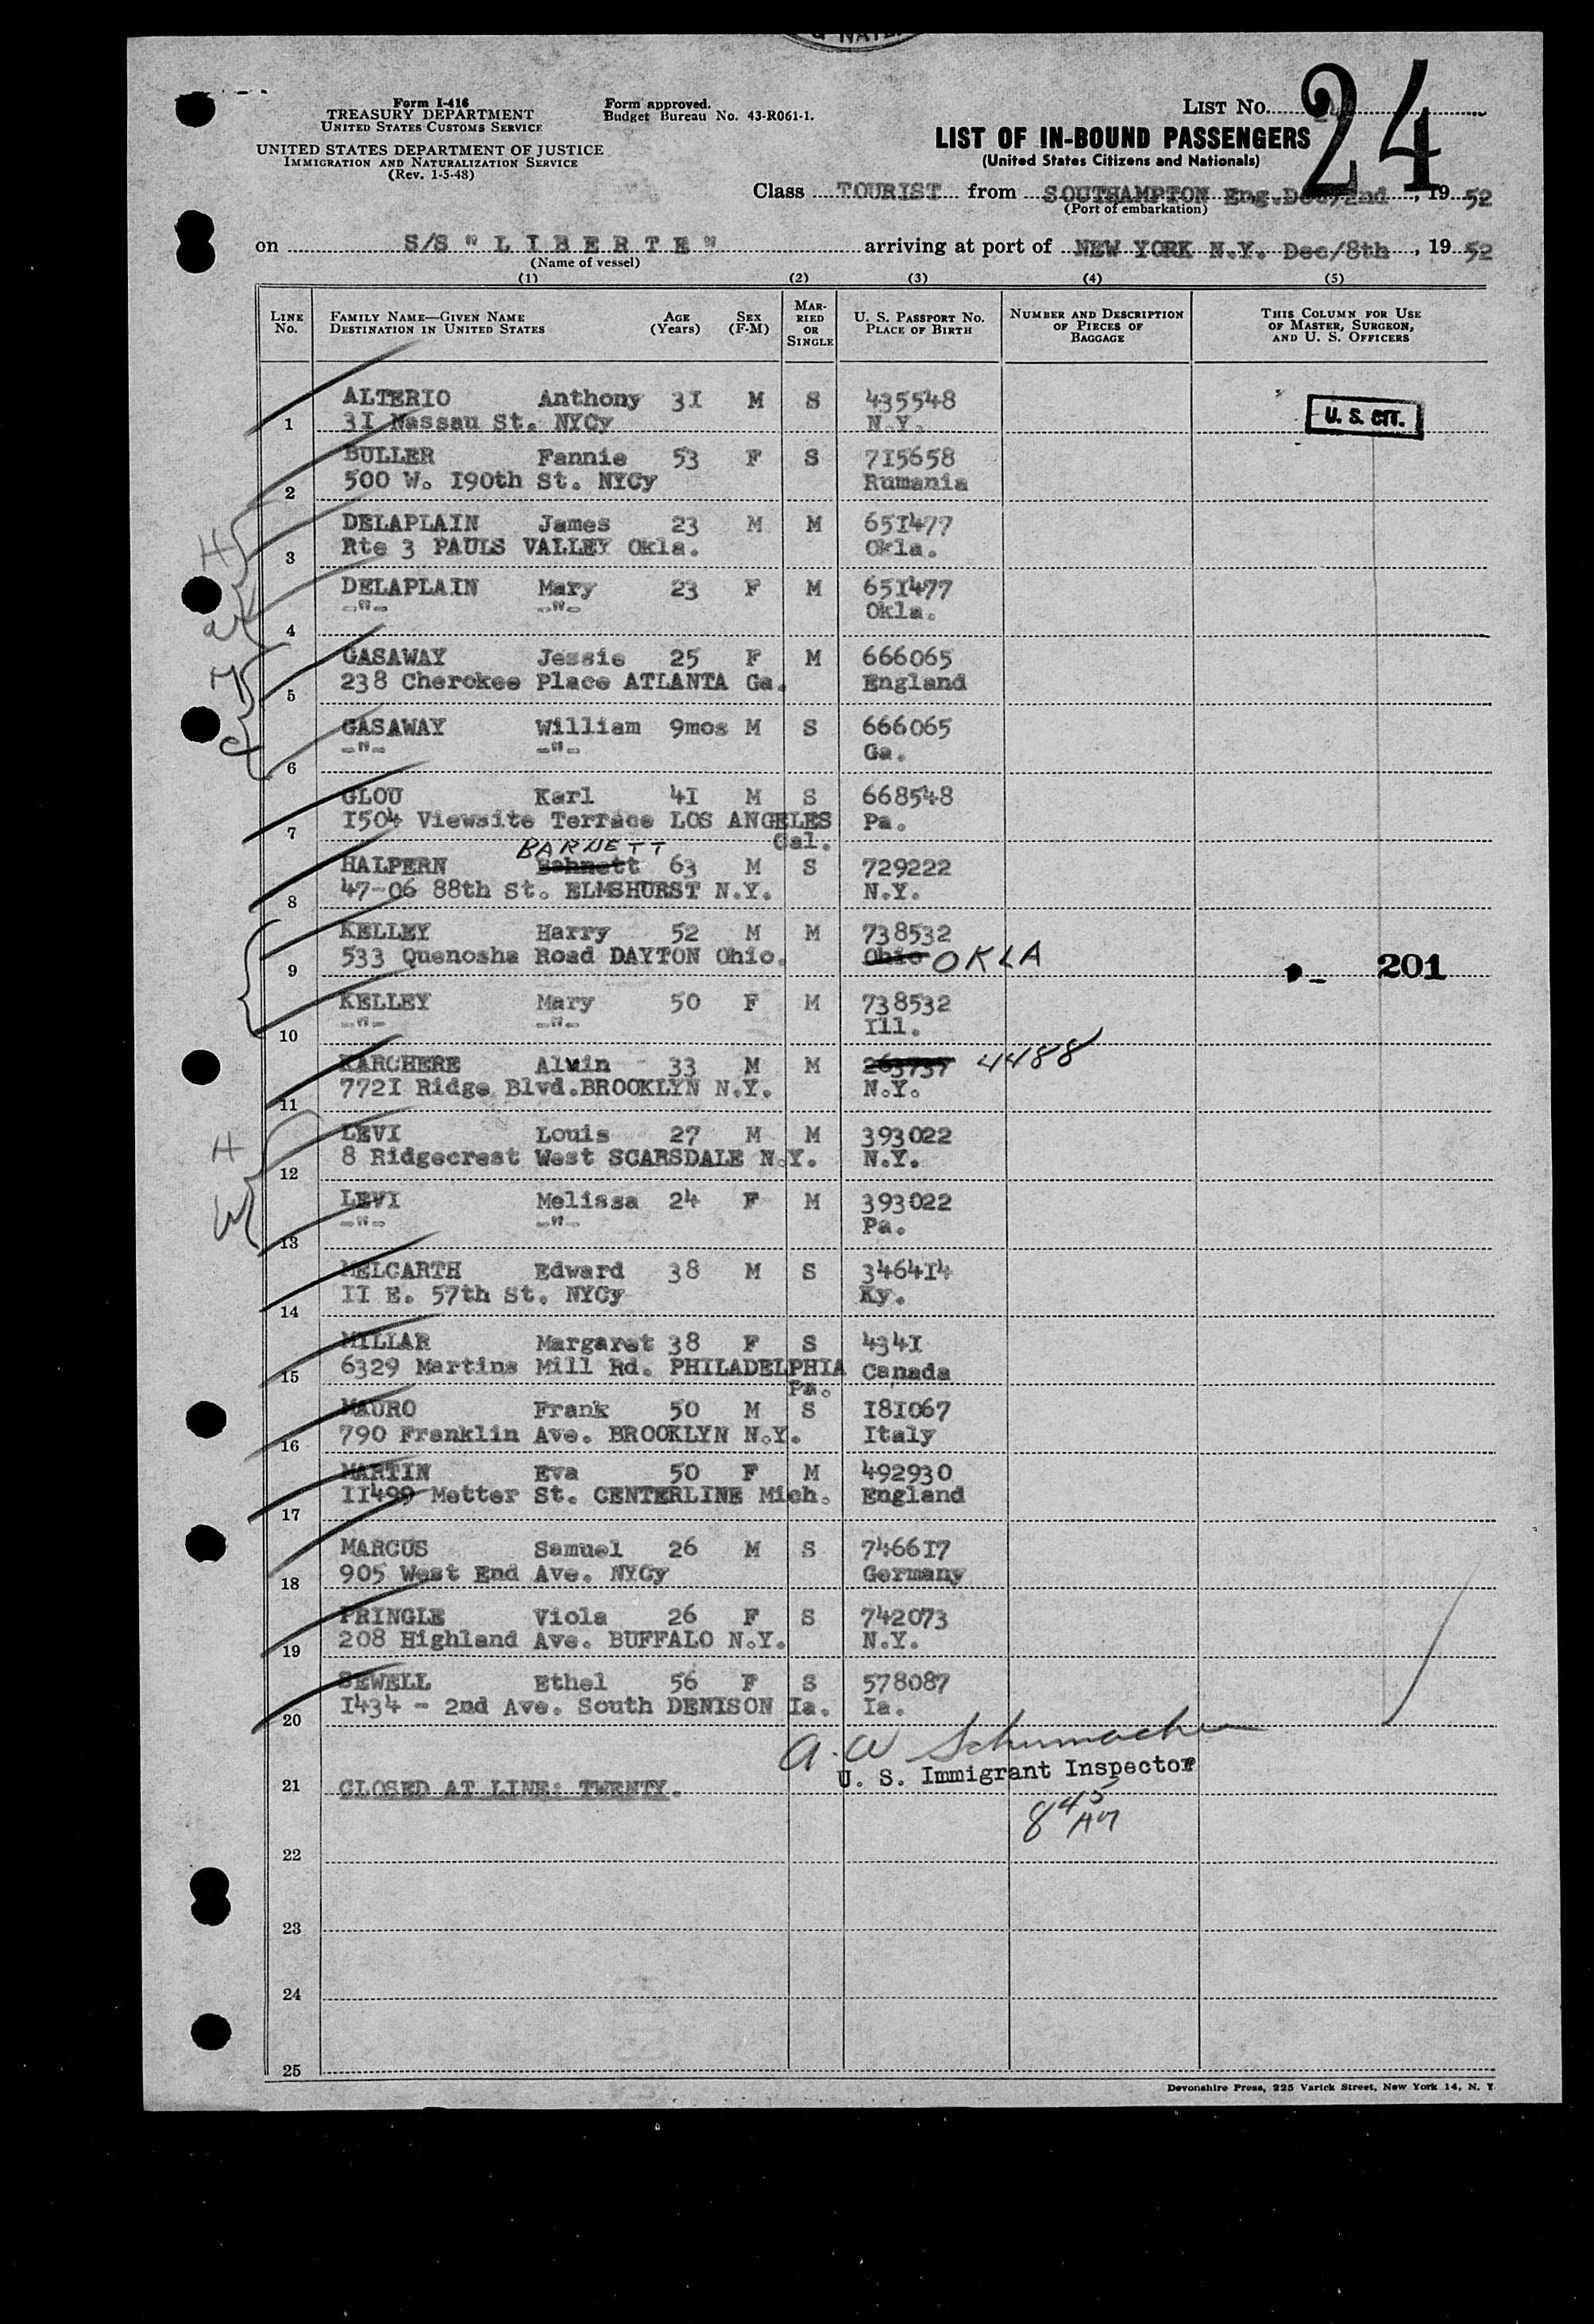 & NAT
Form I-416
TREASURY DEPARTMENT
UNITED STATES CUSTOMS SERVICE
UNITED STATES DEPARTMENT OF JUSTICE
IMMIGRATION AND NATURALIZATION SERVICE
(Rev. 1-5-48)
Form approved.
Budget Bureau No. 43-R061-1.
LIST No. 24
LIST OF IN-BOUND PASSENGERS
(United States Citizens and Nationals)
Class TOURIST from SOUTHAMPTON Eng. Dec/2nd, 19 52
(Port of embarkation)
on S/S " L I B E R T E " arriving at port of NEW YORK N.Y. Dec/8th, 19 52
(Name of vessel)
(1) (2) (3) (4) (5)
LINE No. FAMILY NAME—GIVEN NAME DESTINATION IN UNITED STATES AGE (Years) SEX (F-M) MARRIED OR SINGLE U. S. PASSPORT No. PLACE OF BIRTH NUMBER AND DESCRIPTION OF PIECES OF BAGGAGE THIS COLUMN FOR USE OF MASTER, SURGEON, AND U. S. OFFICERS
ALTERIO Anthony 3I M S 435548
1 3I Nassau St. NYCy N.Y. U. S. CIT.
BULLER Fannie 53 F S 7I5658
2 500 W. I90th St. NYCy Rumania
DELAPLAIN James 23 M M 65I477
3 Rte 3 PAULS VALLEY Okla. Okla.
DELAPLAIN Mary 23 F M 65I477
4 -"- -"- Okla.
GASAWAY Jessie 25 F M 666065
5 238 Cherokee Place ATLANTA Ga. England
GASAWAY William 9mos M S 666065
6 -"- -"- Ga.
GLOU Karl 4I M S 668548
7 I504 Viewsite Terrace LOS ANGELES Cal. Pa.
BARNETT
HALPERN Bahnett 63 M S 729222
8 47-06 88th St. ELMSHURST N.Y. N.Y.
KELLEY Harry 52 M M 738532
9 533 Quenosha Road DAYTON Ohio. Ohio OKLA 201
KELLEY Mary 50 F M 738532
10 -"- -"- Ill.
KARCHERE Alvin 33 M M 263737 4488
11 772I Ridge Blvd.BROOKLYN N.Y. N.Y.
H
LEVI Louis 27 M M 393022
12 8 Ridgecrest West SCARSDALE N.Y. N.Y.
W
LEVI Melissa 24 F M 393022
13 -"- -"- Pa.
MELCARTH Edward 38 M S 3464I4
14 II E. 57th St. NYCy Ky.
MILLAR Margaret 38 F S 434I
15 6329 Martins Mill Rd. PHILADELPHIA Pa. Canada
MAURO Frank 50 M S I8I067
16 790 Franklin Ave. BROOKLYN N.Y. Italy
MARTIN Eva 50 F M 492930
17 II499 Metter St. CENTERLINE Mich. England
MARCUS Samuel 26 M S 7466I7
18 905 West End Ave. NYCy Germany
PRINGLE Viola 26 F S 742073
19 208 Highland Ave. BUFFALO N.Y. N.Y.
SEWELL Ethel 56 F S 578087
20 I434 - 2nd Ave. South DENISON Ia. Ia.
A. W Schumacher
U. S. Immigrant Inspector
21 CLOSED AT LINE: TWENTY.
8 45 AM
22
23
24
25
Devonshire Press, 225 Varick Street, New York 14, N. Y.